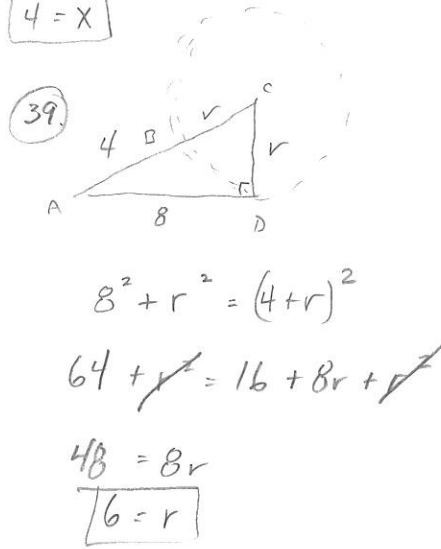 4 = x
39.
C
4 B r
r
A
8
D
8² + r² = (4+r)²
64 + r² = 16 + 8r + r²
48 = 8r
6 = r